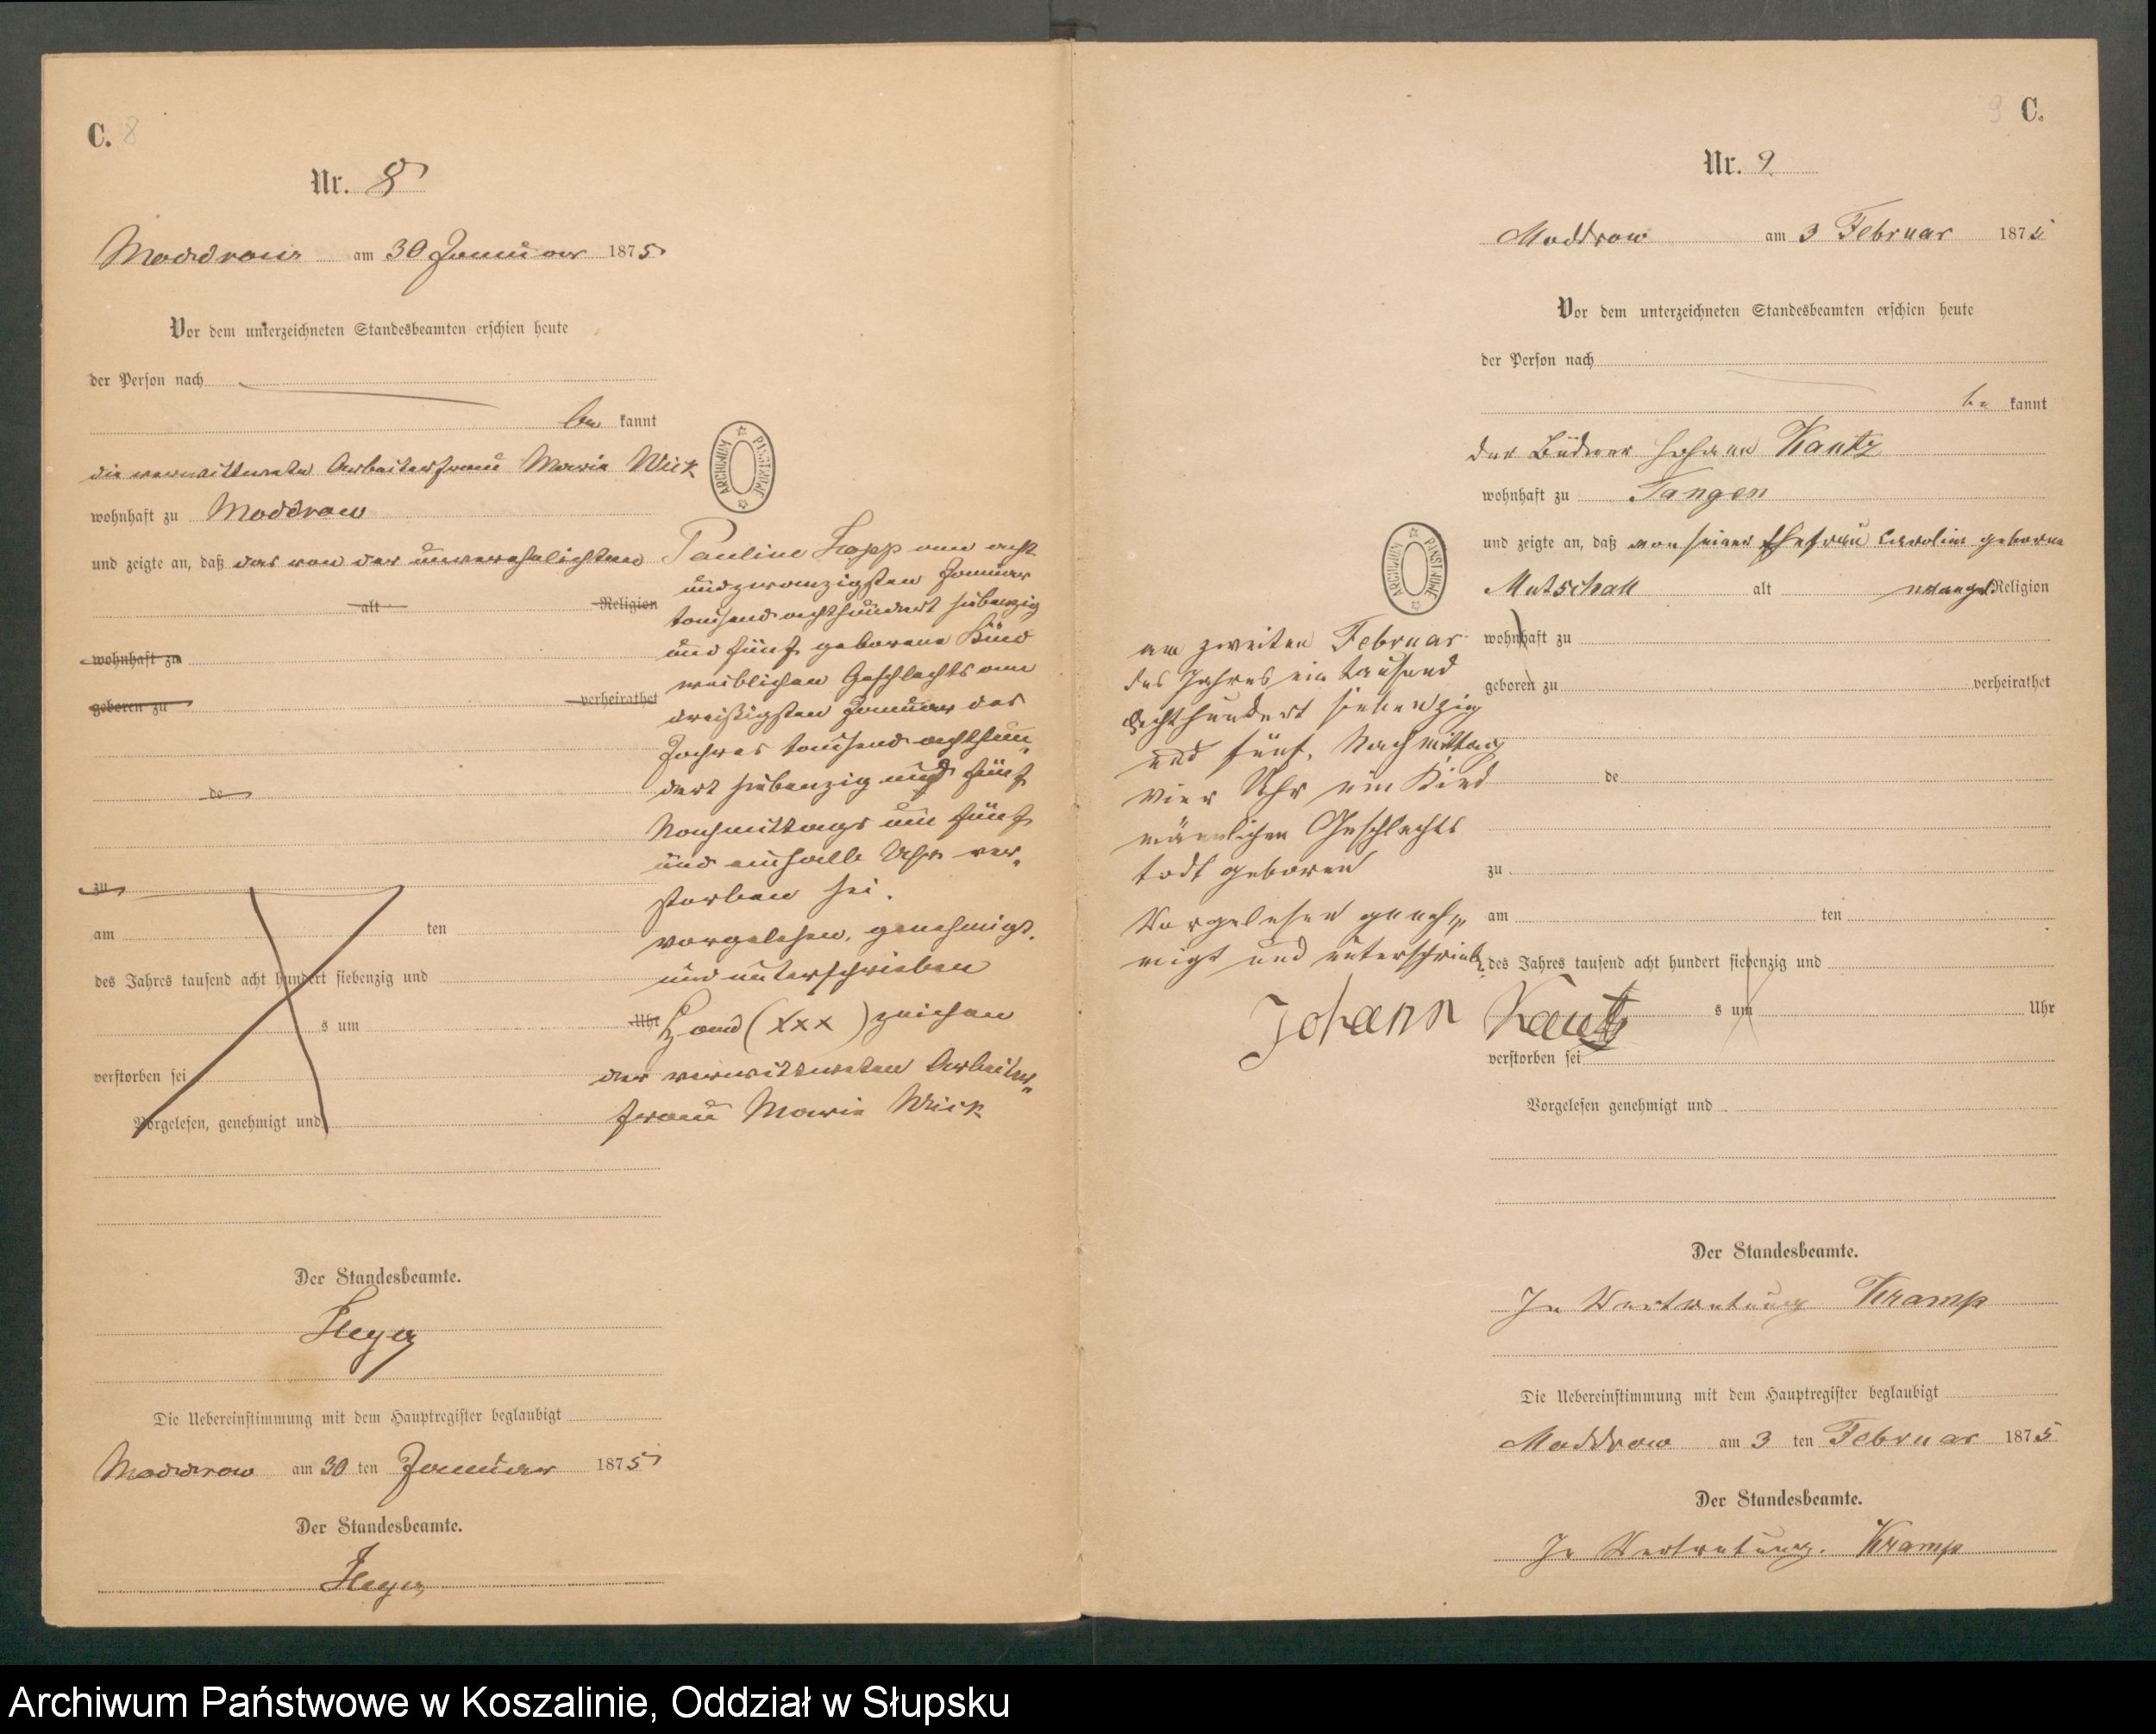 C. 8
Nr. 8
Moddrow am 30 Januar 1875
Vor dem unterzeichneten Standesbeamten erschien heute
der Person nach
be kannt
die verwittwete Arbeiterfrau Marie Wick
wohnhaft zu Moddrow
und zeigte an, daß das von der unverehelichten Pauline Kopp am acht
undzwanzigsten Januar
alt Religion
tausend achthundert siebenzig
und fünf geborene Kind
wohnhaft zu
weiblichen Geschlechts am
geboren zu verheirathet
dreißigsten Januar des
Jahres tausend achthun„
dert siebenzig und fünf
de
Nachmittags um fünf
und einhalb Uhr ver„
zu
storben sei.
am ten
vorgelesen, genehmigt
des Jahres tausend acht hundert siebenzig und
und unterschrieben
s um Uhr
Hand (xxx) zeichen
verstorben sei
der verwittweten Arbeiter„
frau Marie Wick
Vorgelesen, genehmigt und
Der Standesbeamte.
Heyer
Die Uebereinstimmung mit dem Hauptregister beglaubigt
Moddrow am 30 ten Januar 1875
Der Standesbeamte.
Heyer
ARCHIWUM PAŃSTWOWE
9 C.
Nr. 9
Moddrow am 3 Februar 1875
Vor dem unterzeichneten Standesbeamten erschien heute
der Person nach
be kannt
der Büdner Johann Kautz
wohnhaft zu Tangen
und zeigte an, daß von seiner Ehefrau Caroline geborne
Mutschall alt evangel. Religion
am zweiten Februar
wohnhaft zu
des Jahres ein tausend
geboren zu verheirathet
Achthundert siebenzig
und fünf, Nachmittag
vier Uhr ein Kind
de
männlichen Geschlechts
todt geboren
zu
Vorgelesen geneh„
am ten
migt und unterschrieb.
des Jahres tausend acht hundert siebenzig und
s um Uhr
Johann Kautz
verstorben sei
Vorgelesen genehmigt und
Der Standesbeamte.
In Vertretung Kramp
Die Uebereinstimmung mit dem Hauptregister beglaubigt
Moddrow am 3 ten Februar 1875
Der Standesbeamte.
In Vertretung. Kramp
ARCHIWUM PAŃSTWOWE
Archiwum Państwowe w Koszalinie, Oddział w Słupsku